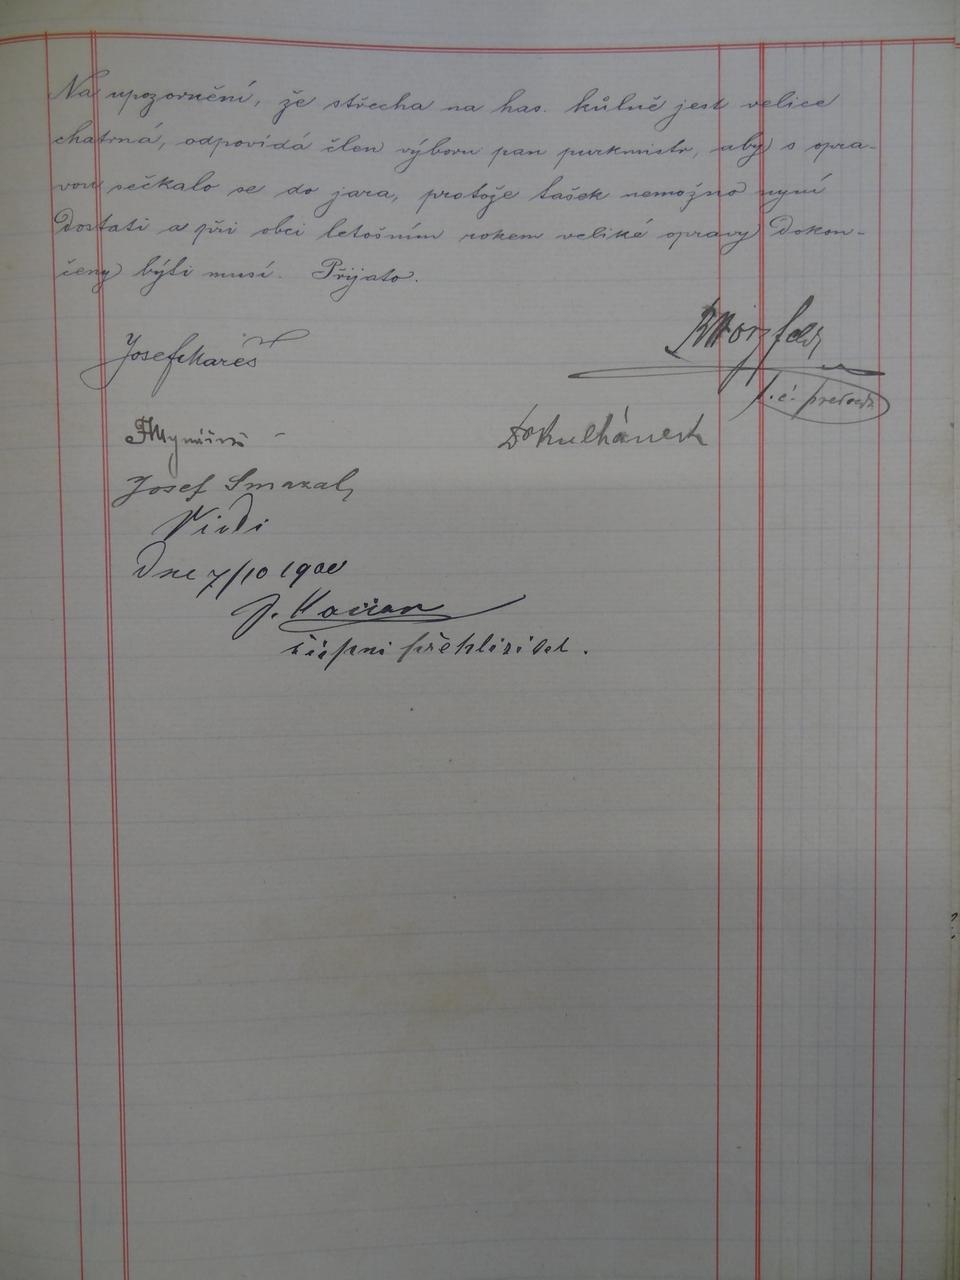 Na upozornění, že střecha na has. kůlně jest velice
chatrná, odpovídá člen výboru pan purkmistr, aby s opra-
vou sečkalo se do jara, protože tašek nemožno nyní
dostati a při obci letošním rokem veliké opravy dokon-
čeny býti musí. Přijato.
Josef Mareš
t. č. předseda
Dokulhánek
Josef Smazal
Vidi
Dne 7/10 1900
přehlížitel.